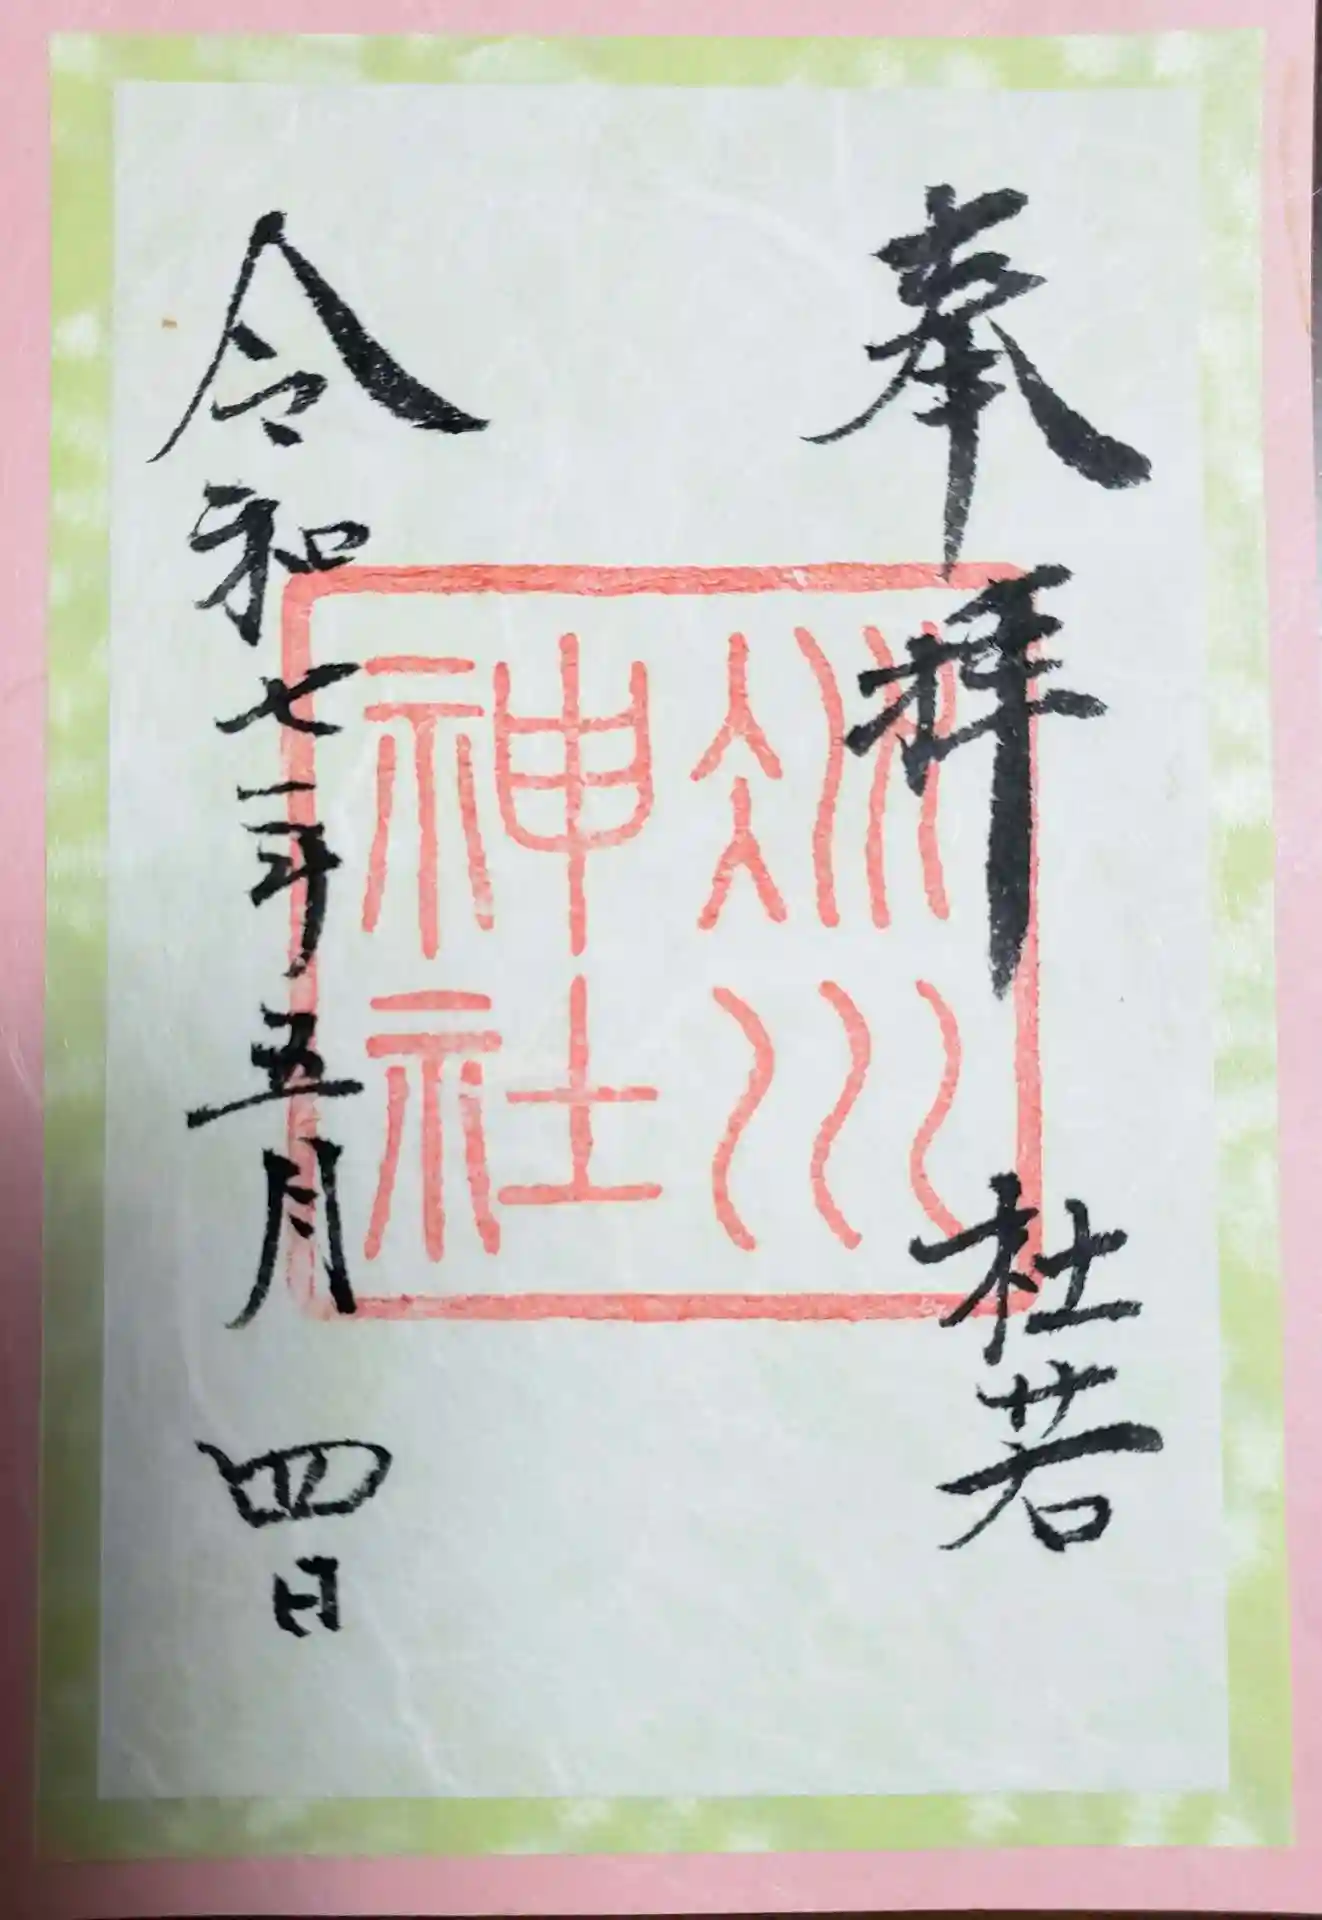 奉拝 杜若
冰川
神社
令和七年五月四日